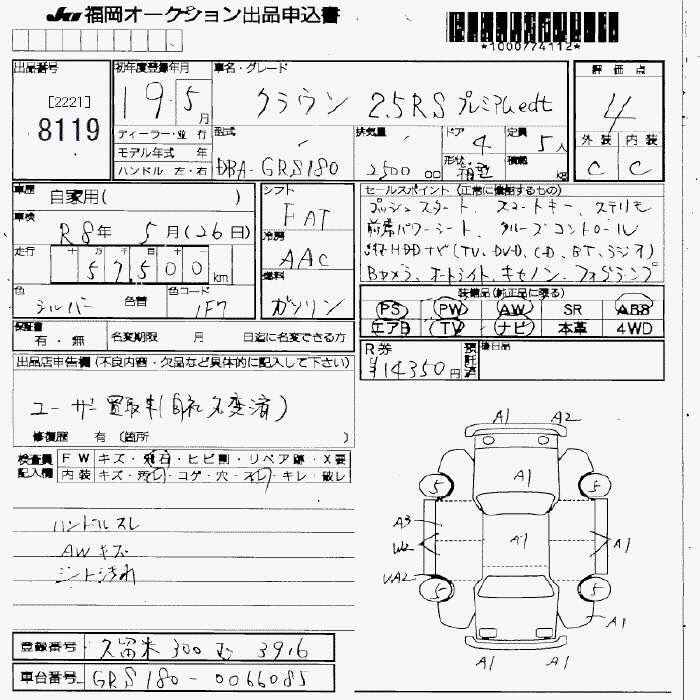 JU 福岡オークション出品申込書
*1000774112*
出品番号 初年度登録年月 車名・グレード 評価点
[2221]
8119
19.5月
クラウン 2.5RS プレミアムedt
4
ディーラー・並行
モデル年式 年
ハンドル 左・右
型式 DBA-GRS180
排気量 2500 cc
ドア 4
形状 箱型
定員 5人
積載 kg
外装 内装
C C
車歴 自家用( )
車検 R8年 5月(26日)
走行 十万千百十
57500km
色 シルバー 色替 色コード 1F7
シフト FAT
冷房 AAC
燃料 ガソリン
セールスポイント(正常に機能するもの)
プッシュスタート スマートキー、ステリモ
前席パワーシート、クルーズコントロール
純正HDDナビ(TV、DVD、CD、BT、ラジオ)
Bカメラ、オートライト、キセノン、フォグランプ
装備品(純正品に限る)
PS PW AW SR ABS
エアB TV ナビ 本革 4WD
保証書 有・無 名変期限 月 日迄に名変できる方
R券 ¥14350円 預託済 後日品
出品店申告欄(不良内容・欠品など具体的に記入して下さい)
ユーザー買取車(自社名変済)
修復歴 有(箇所 )
検査員記入欄
FW キズ・飛石・ヒビ割・リペア跡・X要
内装 キズ・汚レ・コゲ・穴・スレ・キレ・破レ
ハンドルスレ
AWキズ
シート汚れ
A1 A2
A1
5 5
A3
W2
A1
A1
UA2
5 5
A1
A1 A1
登録番号 久留米 300 む 3916
車台番号 GRS180-0066085